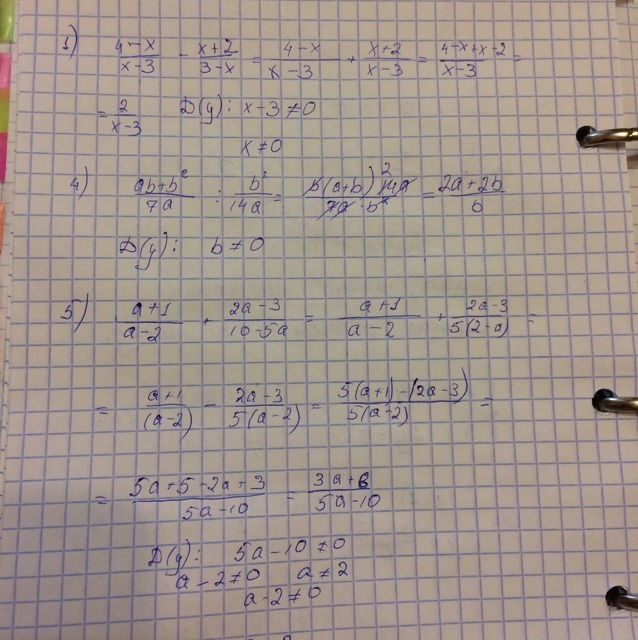 1) (4-x)/(x-3) - (x+2)/(3-x) = (4-x)/(x-3) + (x+2)/(x-3) = (4-x+x-2)/(x-3) =
= 2/(x-3) D(y): x-3≠0
x≠0
4) (ab+b²)/(7a) : b²/(14a) = (b(a+b) 14a 2)/(7a·b²) = (2a+2b)/b
D(y): b≠0
5) (a+1)/(a-2) + (2a-3)/(10-5a) = (a+1)/(a-2) + (2a-3)/(5(2-a)) =
= (a+1)/((a-2)) - (2a-3)/(5(a-2)) = (5(a+1)-(2a-3))/(5(a-2)) =
= (5a+5-2a+3)/(5a-10) = (3a+8)/(5a-10)
D(y): 5a-10≠0
a-2≠0 a≠2
a-2≠0